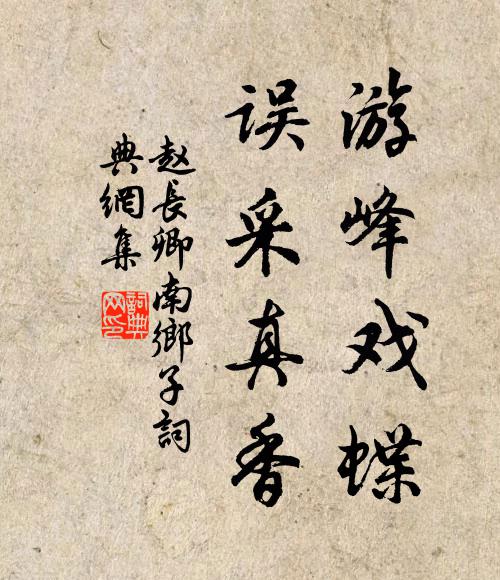 游峰戏蝶
误采真香
赵長卿南鄉子詞
典網集
詞典網印